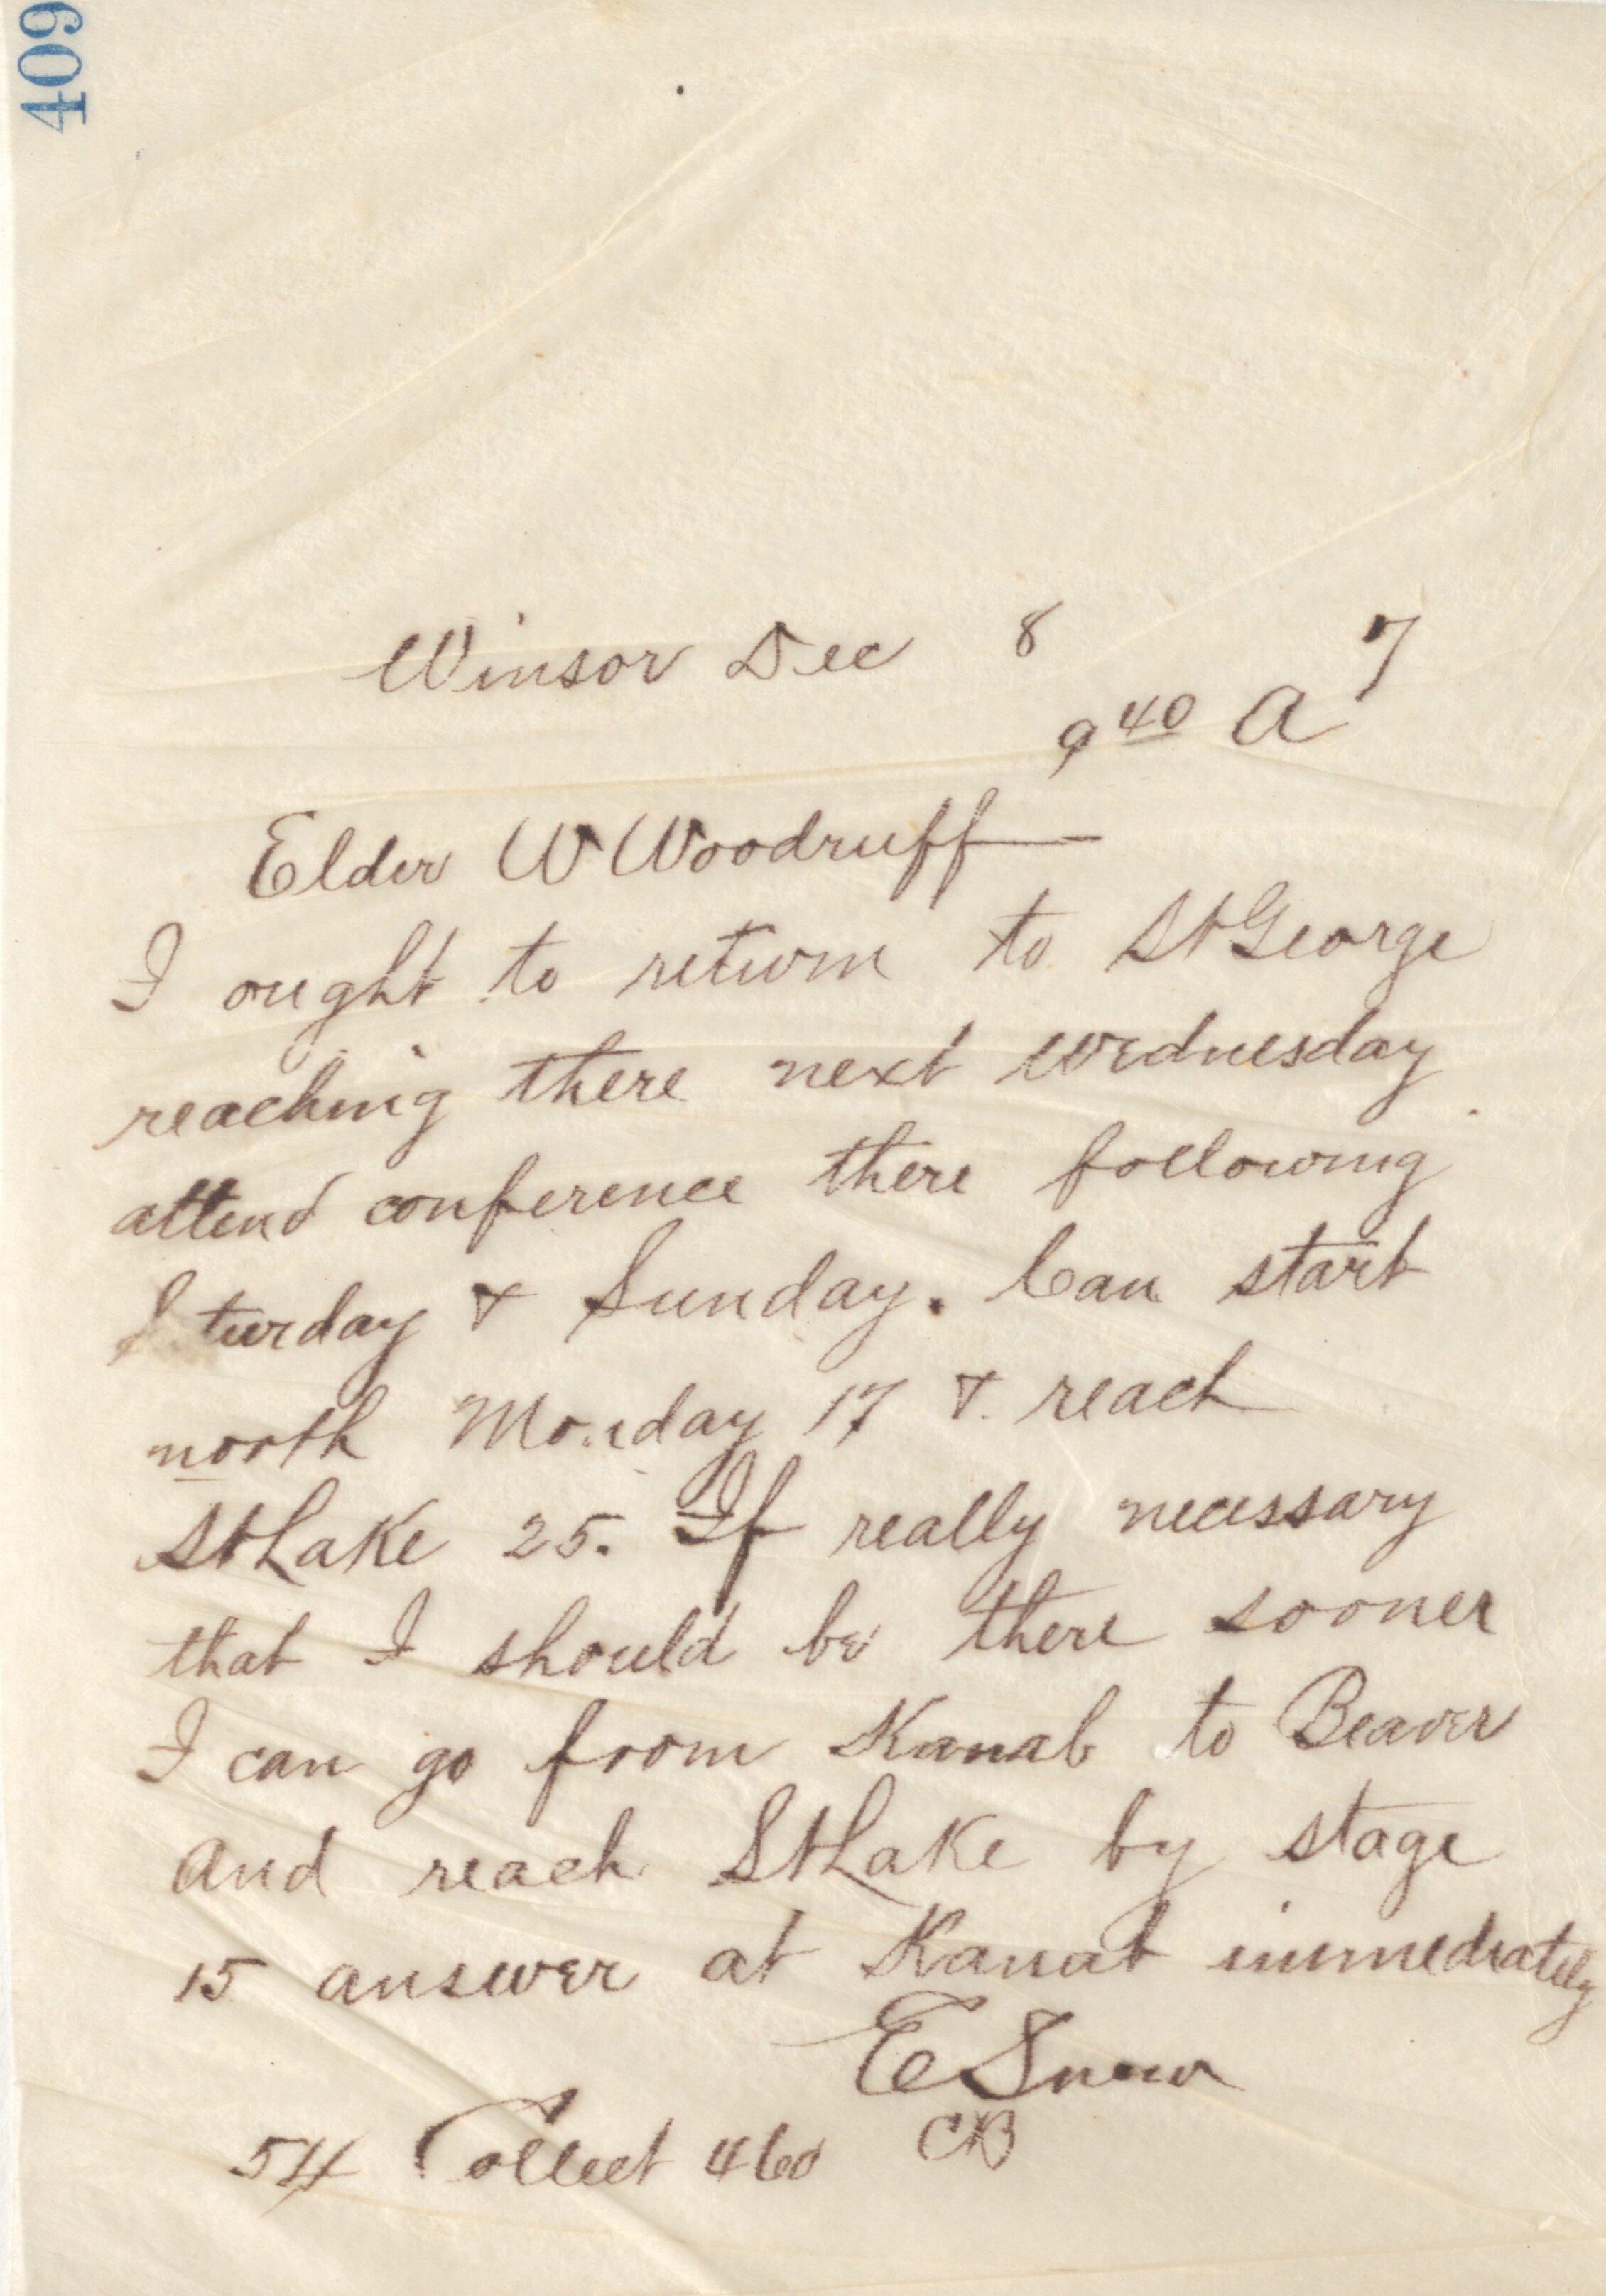 409
Winsor Dec 8 7
9 40 A
Elder W Woodruff
I ought to return to St George
reaching there next wednesday
attend conference there following
Saturday & Sunday. Can start
north Monday 17 & reach
StLake 25. If really necessary
that I should be there sooner
I can go from Kanab to Beaver
and reach StLake by stage
15 answer at Kanab immediately
E Snow
54 Collect 460 CB